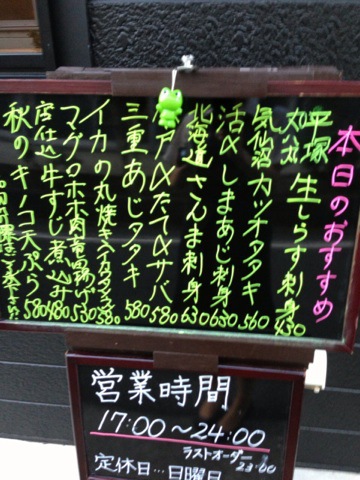 本日のおすすめ
平塚 生しらす刺身 450
気仙沼カツオタタキ 560
活〆しまあじ刺身 650
北海道さんま刺身 630
戸〆たて〆サバ 580
三重あじタタキ 580
イカの丸焼き 580
マグロホホ肉竜田揚げ 530
店仕込牛すじ煮込み 480
秋のキノコ天ぷら 580
営業時間
17:00〜24:00
ラストオーダー
23:00
定休日…日曜日